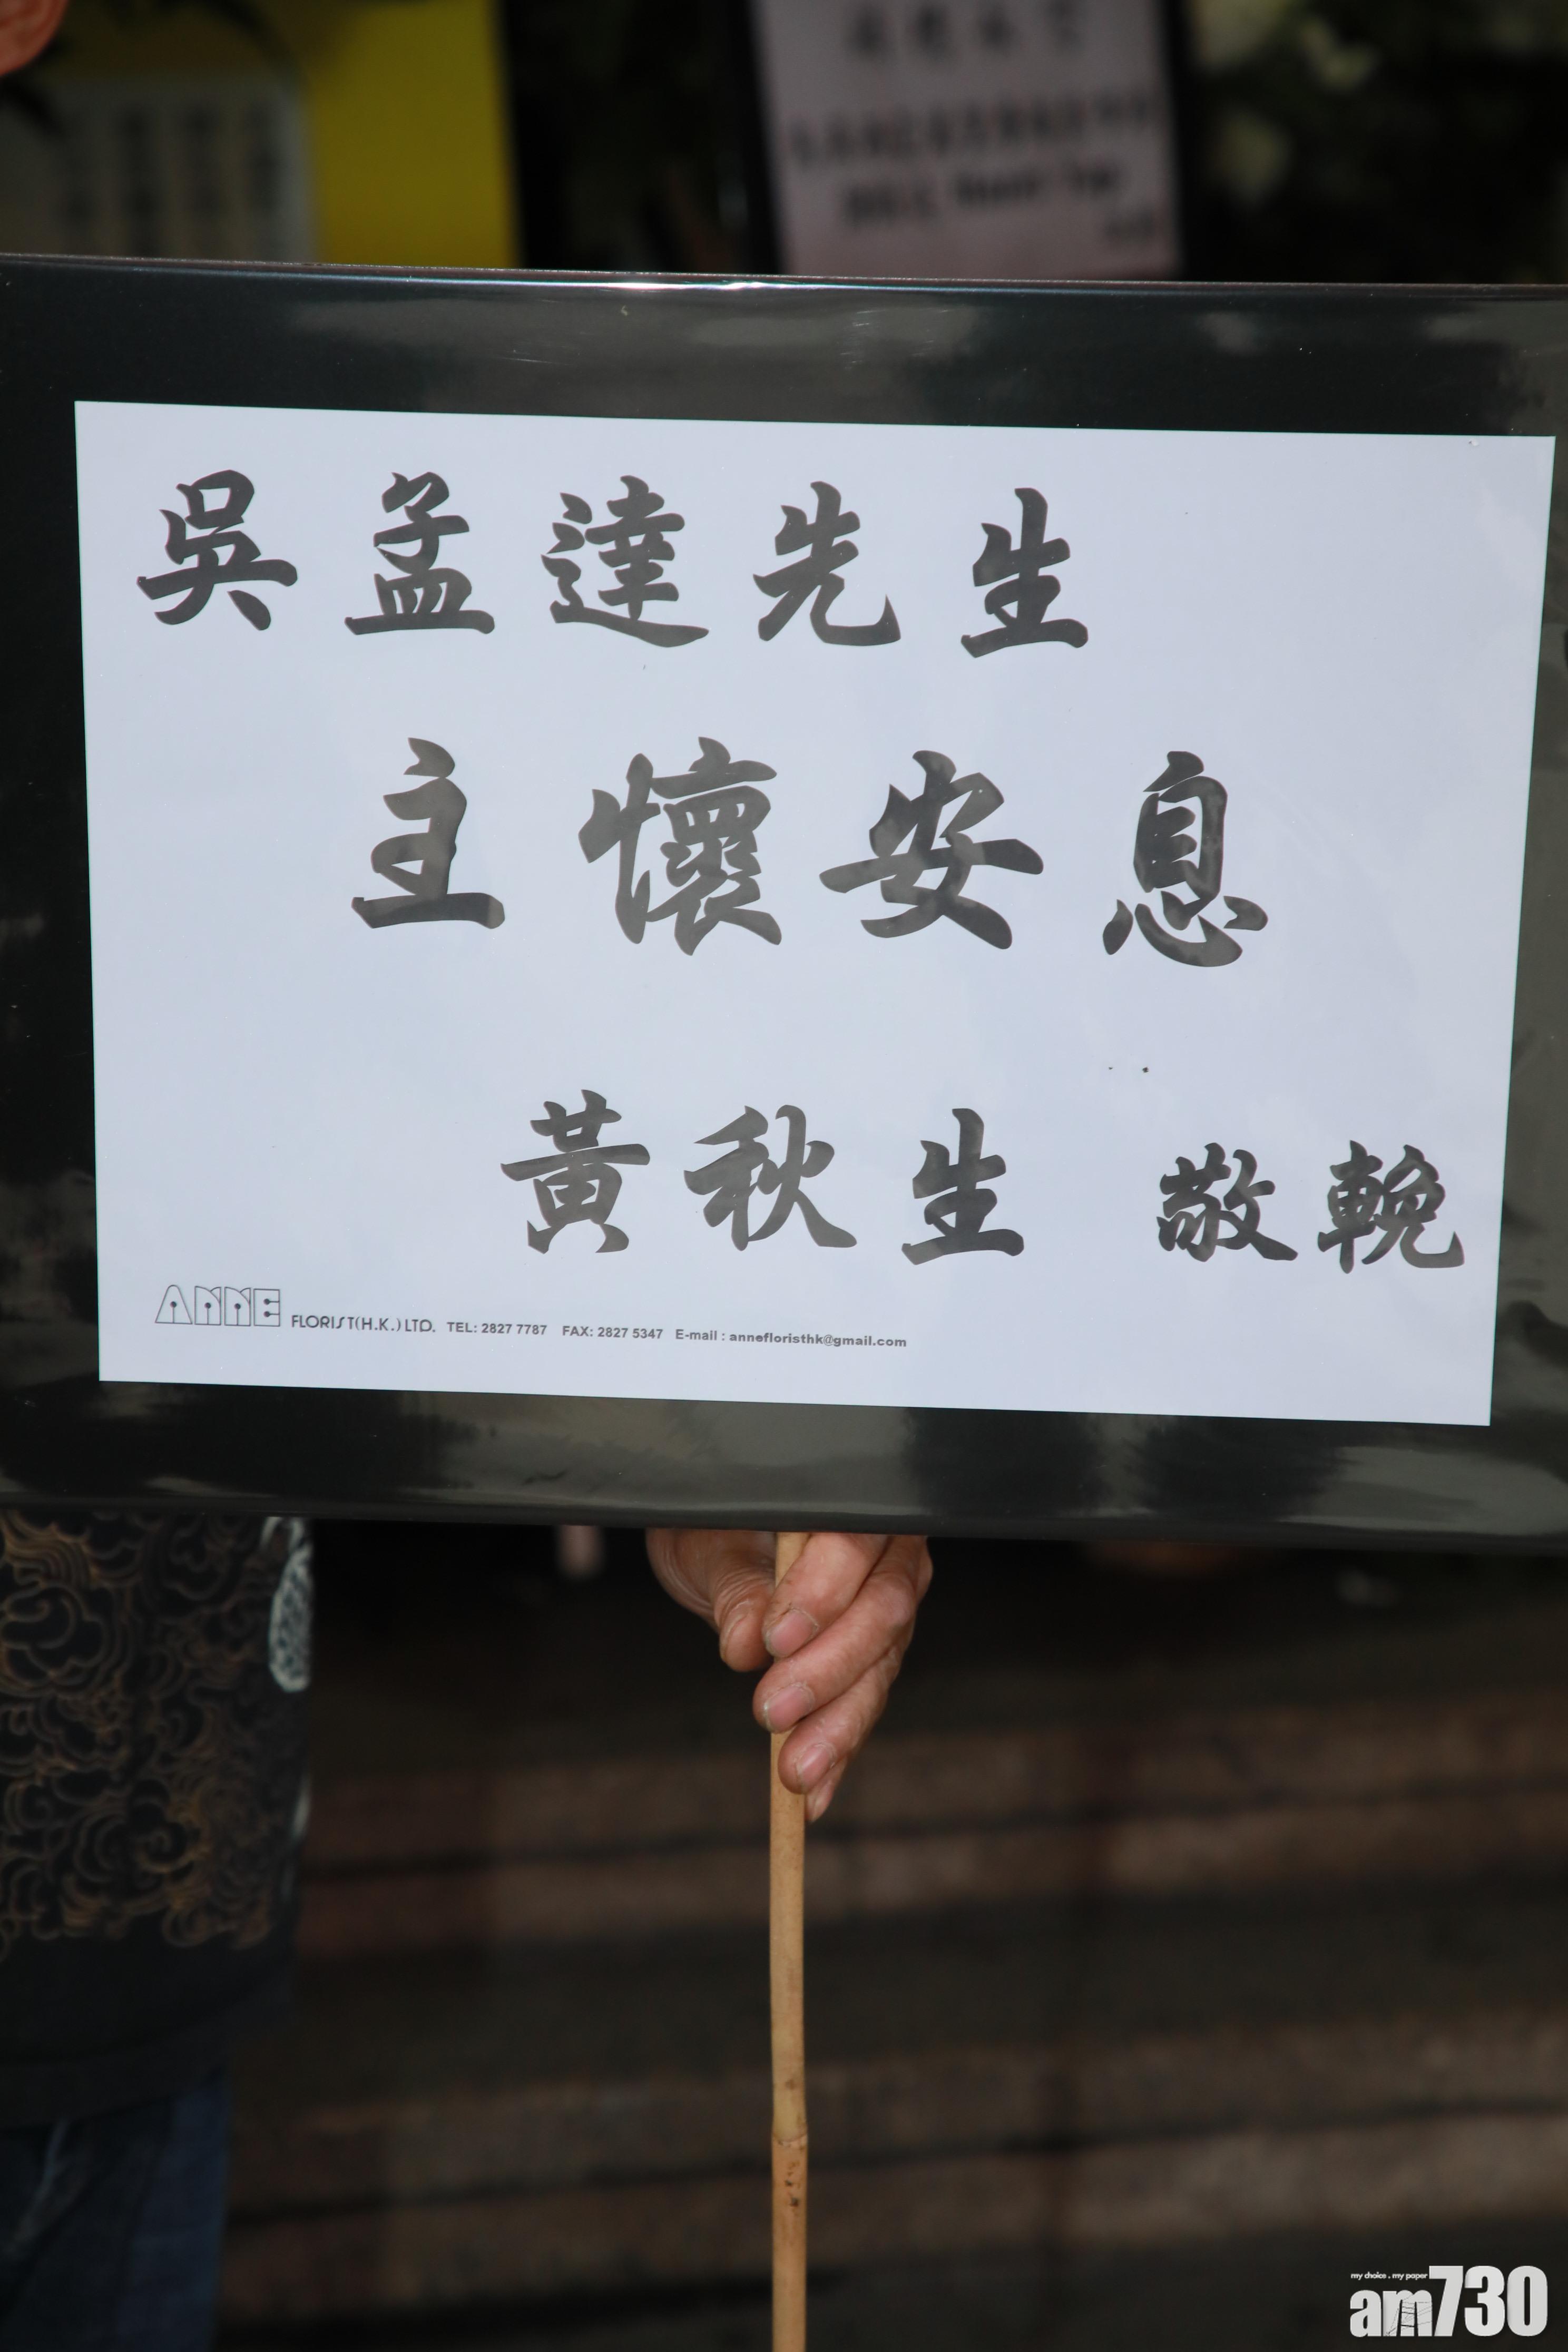 吳孟達先生
主懷安息
黃秋生 敬輓
ANNE FLORIST(H.K.)LTD. TEL: 2827 7787 FAX: 2827 5347 E-mail : annefloristhk@gmail.com
my choice . my paper
am730